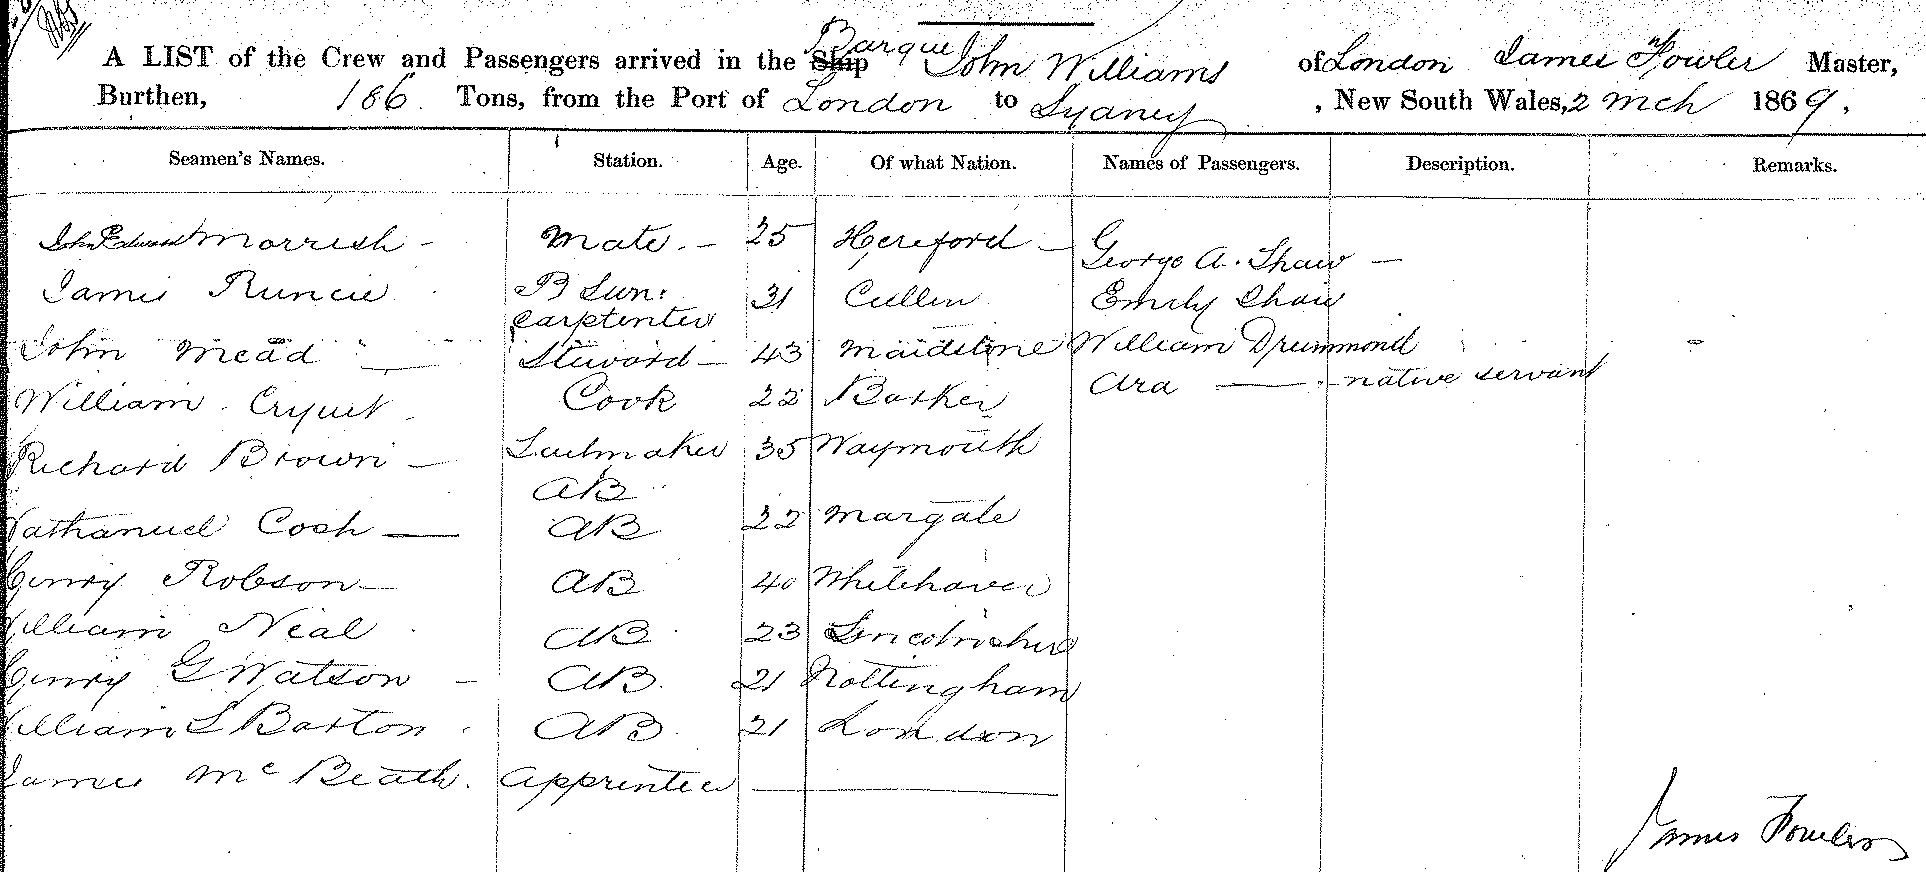 A LIST of the Crew and Passengers arrived in the Ship Barque John Williams of London James Fowler Master,
Burthen, 186 Tons, from the Port of London to Sydney, New South Wales, 2 Mch 1869.
Seamen's Names. Station. Age. Of what Nation. Names of Passengers. Description. Remarks.
John Edward Morrish - Mate. - 25 Hereford - George A. Shaw -
James Runcie B Swn. 31 Cullen Emily Shaw
Carptenter
John Mead - Steward - 43 Maidstone William Drummond
William Cook 22 Barking Ara - native servant
Richard Brown - Sailmaker 35 Waymouth
AB
Nathanuel Cosh - AB 22 Margate
Henry Robson - AB 40 Whitehaven
William Neal AB 23 Lincolnshire
Henry G Watson - AB 21 Nottingham
William S Barton AB 21 London
James McBeath. Apprentice
James Fowler